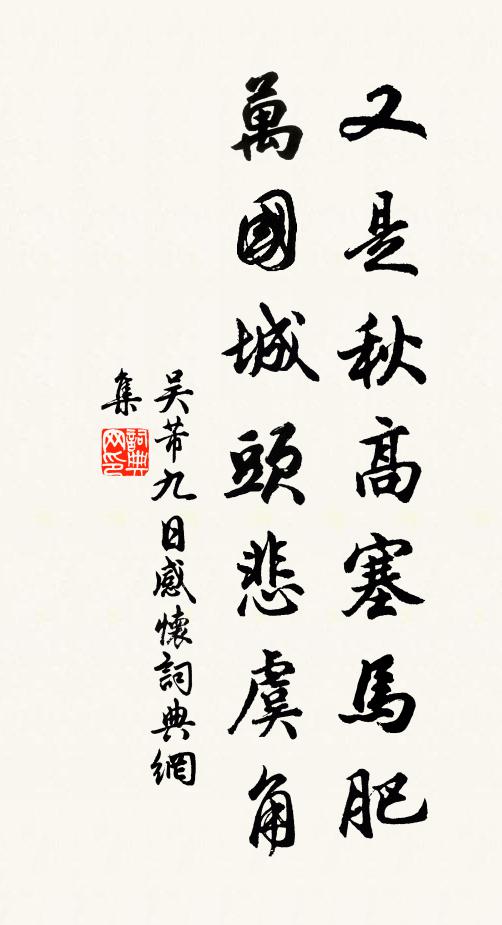 又是秋高塞馬肥
萬國城頭悲虞角
吴芾九日感懷詞典網
集
詞典
网印